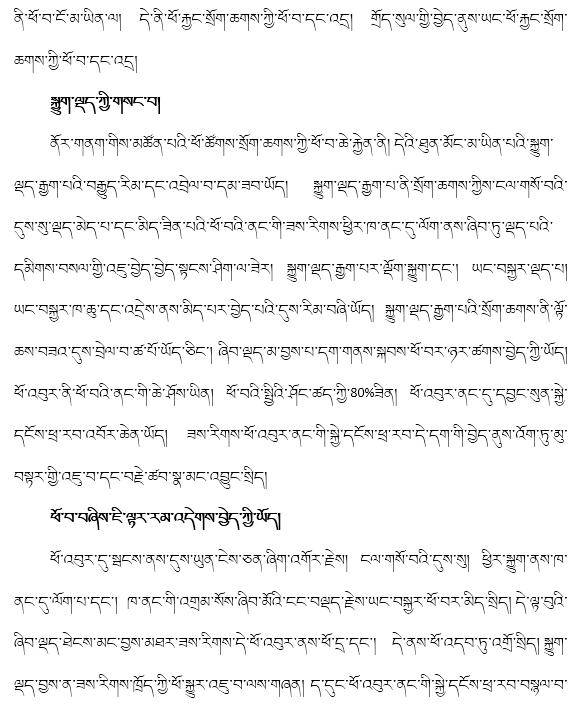 ནི་ཕོ་བ་ངོ་མ་ཡིན་ལ། དེ་ནི་ཕོ་རྐྱང་སྲོག་ཆགས་ཀྱི་ཕོ་བ་དང་འདྲ། གྲོད་སུལ་གྱི་བྱེད་ནུས་ཡང་ཕོ་རྐྱང་སྲོག་
ཆགས་ཀྱི་ཕོ་བ་དང་འདྲ།
སྐྱུག་ལྡད་ཀྱི་གསང་བ།
ནོར་གནག་གིས་མཚོན་པའི་ཕོ་ཚོགས་སྲོག་ཆགས་ཀྱི་ཕོ་བ་ཆེ་རྐྱེན་ནི། དེའི་ཐུན་མོང་མ་ཡིན་པའི་སྐྱུག་
ལྡད་རྒྱག་པའི་བརྒྱུད་རིམ་དང་འབྲེལ་བ་དམ་ཟབ་ཡོད། སྐྱུག་ལྡད་རྒྱག་པ་ནི་སྲོག་ཆགས་ཀྱིས་ངལ་གསོ་བའི་
དུས་སུ་ལྡད་མེད་པ་དང་མིད་ཟིན་པའི་ཕོ་བའི་ནང་གི་ཟས་རིགས་ཕྱིར་ཁ་ནང་དུ་ལོག་ནས་ཞིབ་ཏུ་ལྡད་པའི་
དམིགས་བསལ་གྱི་འཇུ་བྱེད་བྱེད་སྟངས་ཤིག་ལ་ཟེར། སྐྱུག་ལྡད་རྒྱག་པར་ལྡོག་སྐྱུག་དང་། ཡང་བསྐྱར་ལྡད་པ།
ཡང་བསྐྱར་ཁ་ཆུ་དང་འདྲེས་ནས་མིད་པར་བྱེད་པའི་དུས་རིམ་བཞི་ཡོད། སྐྱུག་ལྡད་རྒྱག་པའི་སྲོག་ཆགས་ནི་ལྟོ་
ཆས་བཟའ་དུས་བྲེལ་བ་ཚ་པོ་ཡོད་ཅིང་། ཞིབ་ལྡད་མ་བྱས་པ་དག་གནས་སྐབས་ཕོ་བར་ཉར་ཚགས་བྱེད་ཀྱི་ཡོད།
ཕོ་འབུར་ནི་ཕོ་བའི་ནང་གི་ཆེ་ཤོས་ཡིན། ཕོ་བའི་སྤྱིའི་ཤོང་ཚད་ཀྱི་80%ཟིན། ཕོ་འབུར་ནང་དུ་དབྱང་སུན་སྐྱེ་
དངོས་ཕྲ་རབ་འབོར་ཆེན་ཡོད། ཟས་རིགས་ཕོ་འབུར་ནང་གི་སྐྱེ་དངོས་ཕྲ་རབ་དེ་དག་གི་བྱེད་ནུས་འོག་ཏུ་མུ་
བསྟར་གྱི་འཇུ་བ་དང་བརྗེ་ཚབ་སྣ་མང་འབྱུང་སྲིད།
ཕོ་བ་བཞིས་ཇི་ལྟར་རམ་འདེགས་བྱེད་ཀྱི་ཡོད།
ཕོ་འབུར་དུ་སྦངས་ནས་དུས་ཡུན་ངེས་ཅན་ཞིག་འགོར་རྗེས། ངལ་གསོ་བའི་དུས་སུ། ཕྱིར་སྐྱུག་ནས་ཁ་
ནང་དུ་ལོག་པ་དང་། ཁ་ནང་གི་འགྲམ་སོས་ཞིབ་མོའི་ངང་བལྡད་རྗེས་ཡང་བསྐྱར་ཕོ་བར་མིད་སྲིད། དེ་ལྟ་བུའི་
ཞིབ་ལྡད་ཐེངས་མང་བྱས་མཐར་ཟས་རིགས་དེ་ཕོ་འབུར་ནས་ཕོ་དྲ་དང་། དེ་ནས་ཕོ་འདབ་ཏུ་འགྲོ་སྲིད། སྐྱུག་
ལྡད་བྱས་ན་ཟས་རིགས་ཁྲོད་ཀྱི་ཕོ་སྐྱུར་འཇུ་བ་ལས་གཞན། ད་དུང་ཕོ་འབུར་ནང་གི་སྐྱེ་དངོས་ཕྲ་རབ་བསྙལ་བ་